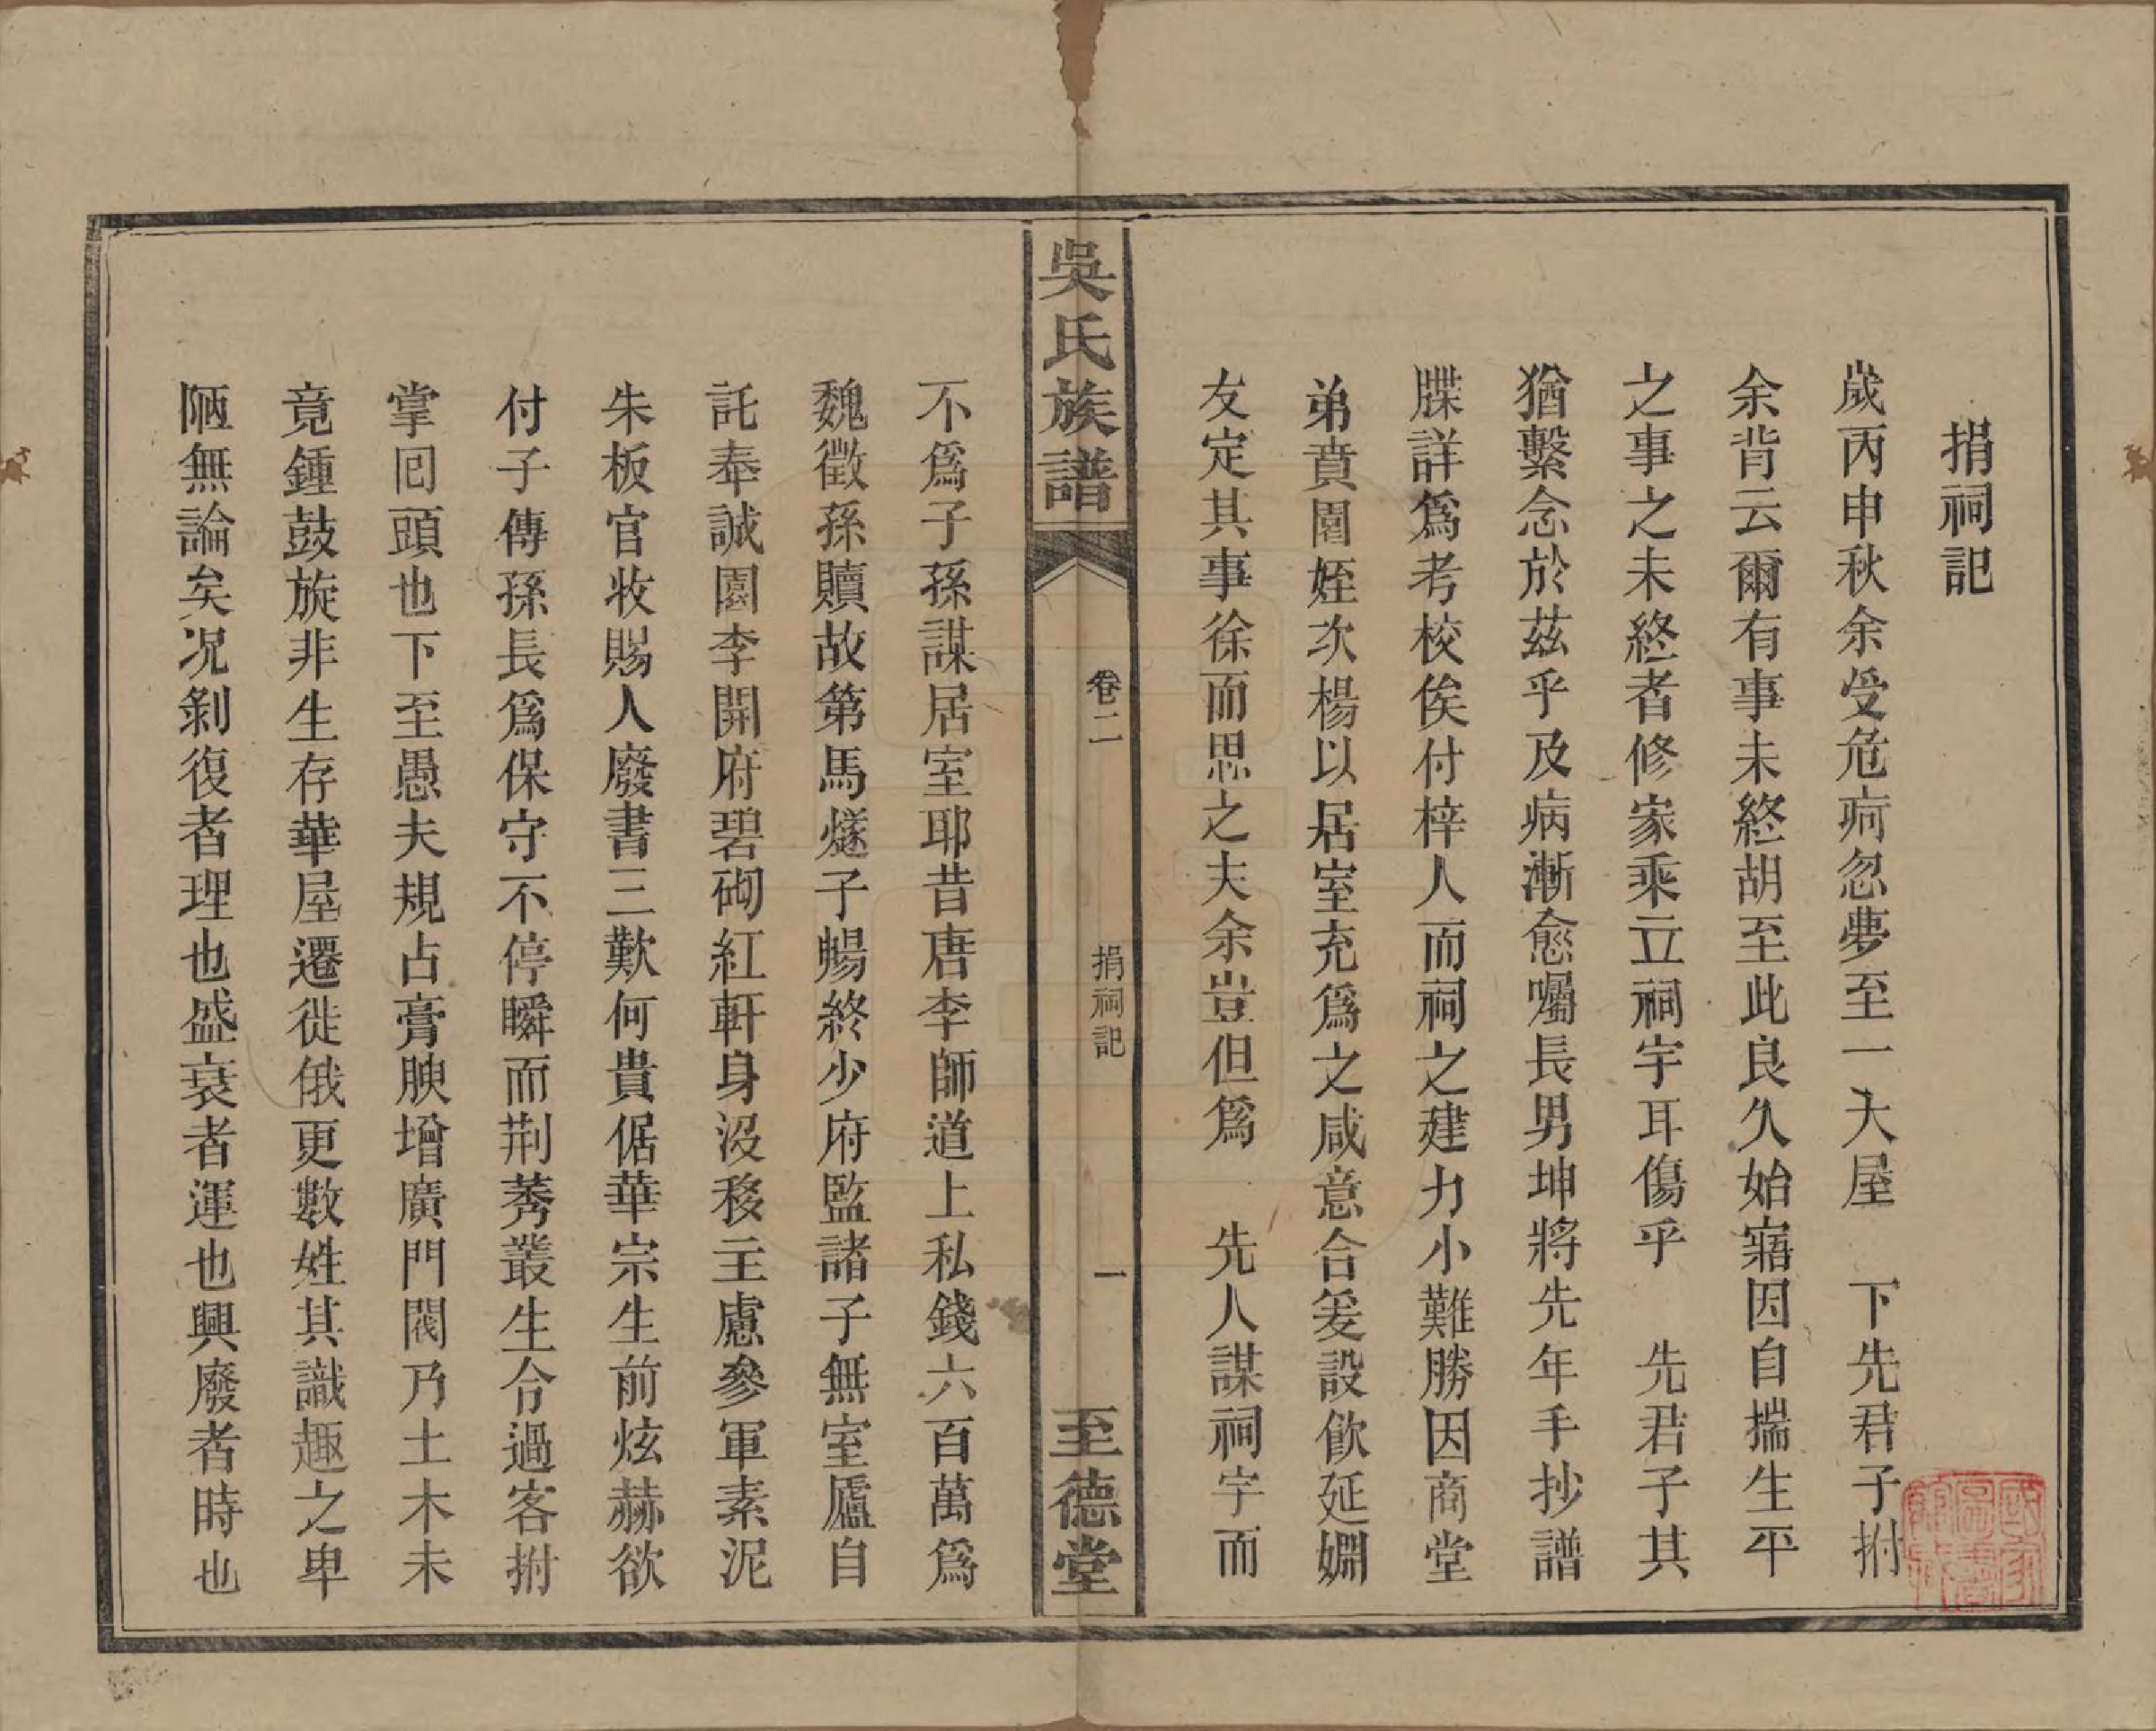 捐祠記
歲丙申秋余受危疴忽夢至一大屋　下先君子拊
余背云爾有事未終胡至此良久始寤因自揣生平
之事之未終者修家乘立祠宇耳傷乎　先君子其
猶繫念於茲乎及病漸愈囑長男坤將先年手抄譜
牒詳爲考校俟付梓人而祠之建力小難勝因商堂
弟賁園姪次楊以居室充爲之咸意合爰設飲延嫺
友定其事徐而思之夫余豈但爲　先人謀祠宇而
吳氏族譜
卷二
捐祠記
一
至德堂
不爲子孫謀居室耶昔唐李師道上私錢六百萬爲
魏徵孫贖故第馬燧子暢終少府監諸子無室廬自
託奉誠園李開府碧砌紅軒身沒移主慮參軍素泥
朱板官收賜人廢書三歎何貴倨華宗生前炫赫欲
付子傳孫長爲保守不停瞬而荆莠叢生令過客拊
掌囘頭也下至愚夫規占膏腴增廣門閥乃土木未
竟鍾鼓旋非生存華屋遷徙俄更數姓其識趣之卑
陋無論矣况剝復者理也盛衰者運也興廢者時也